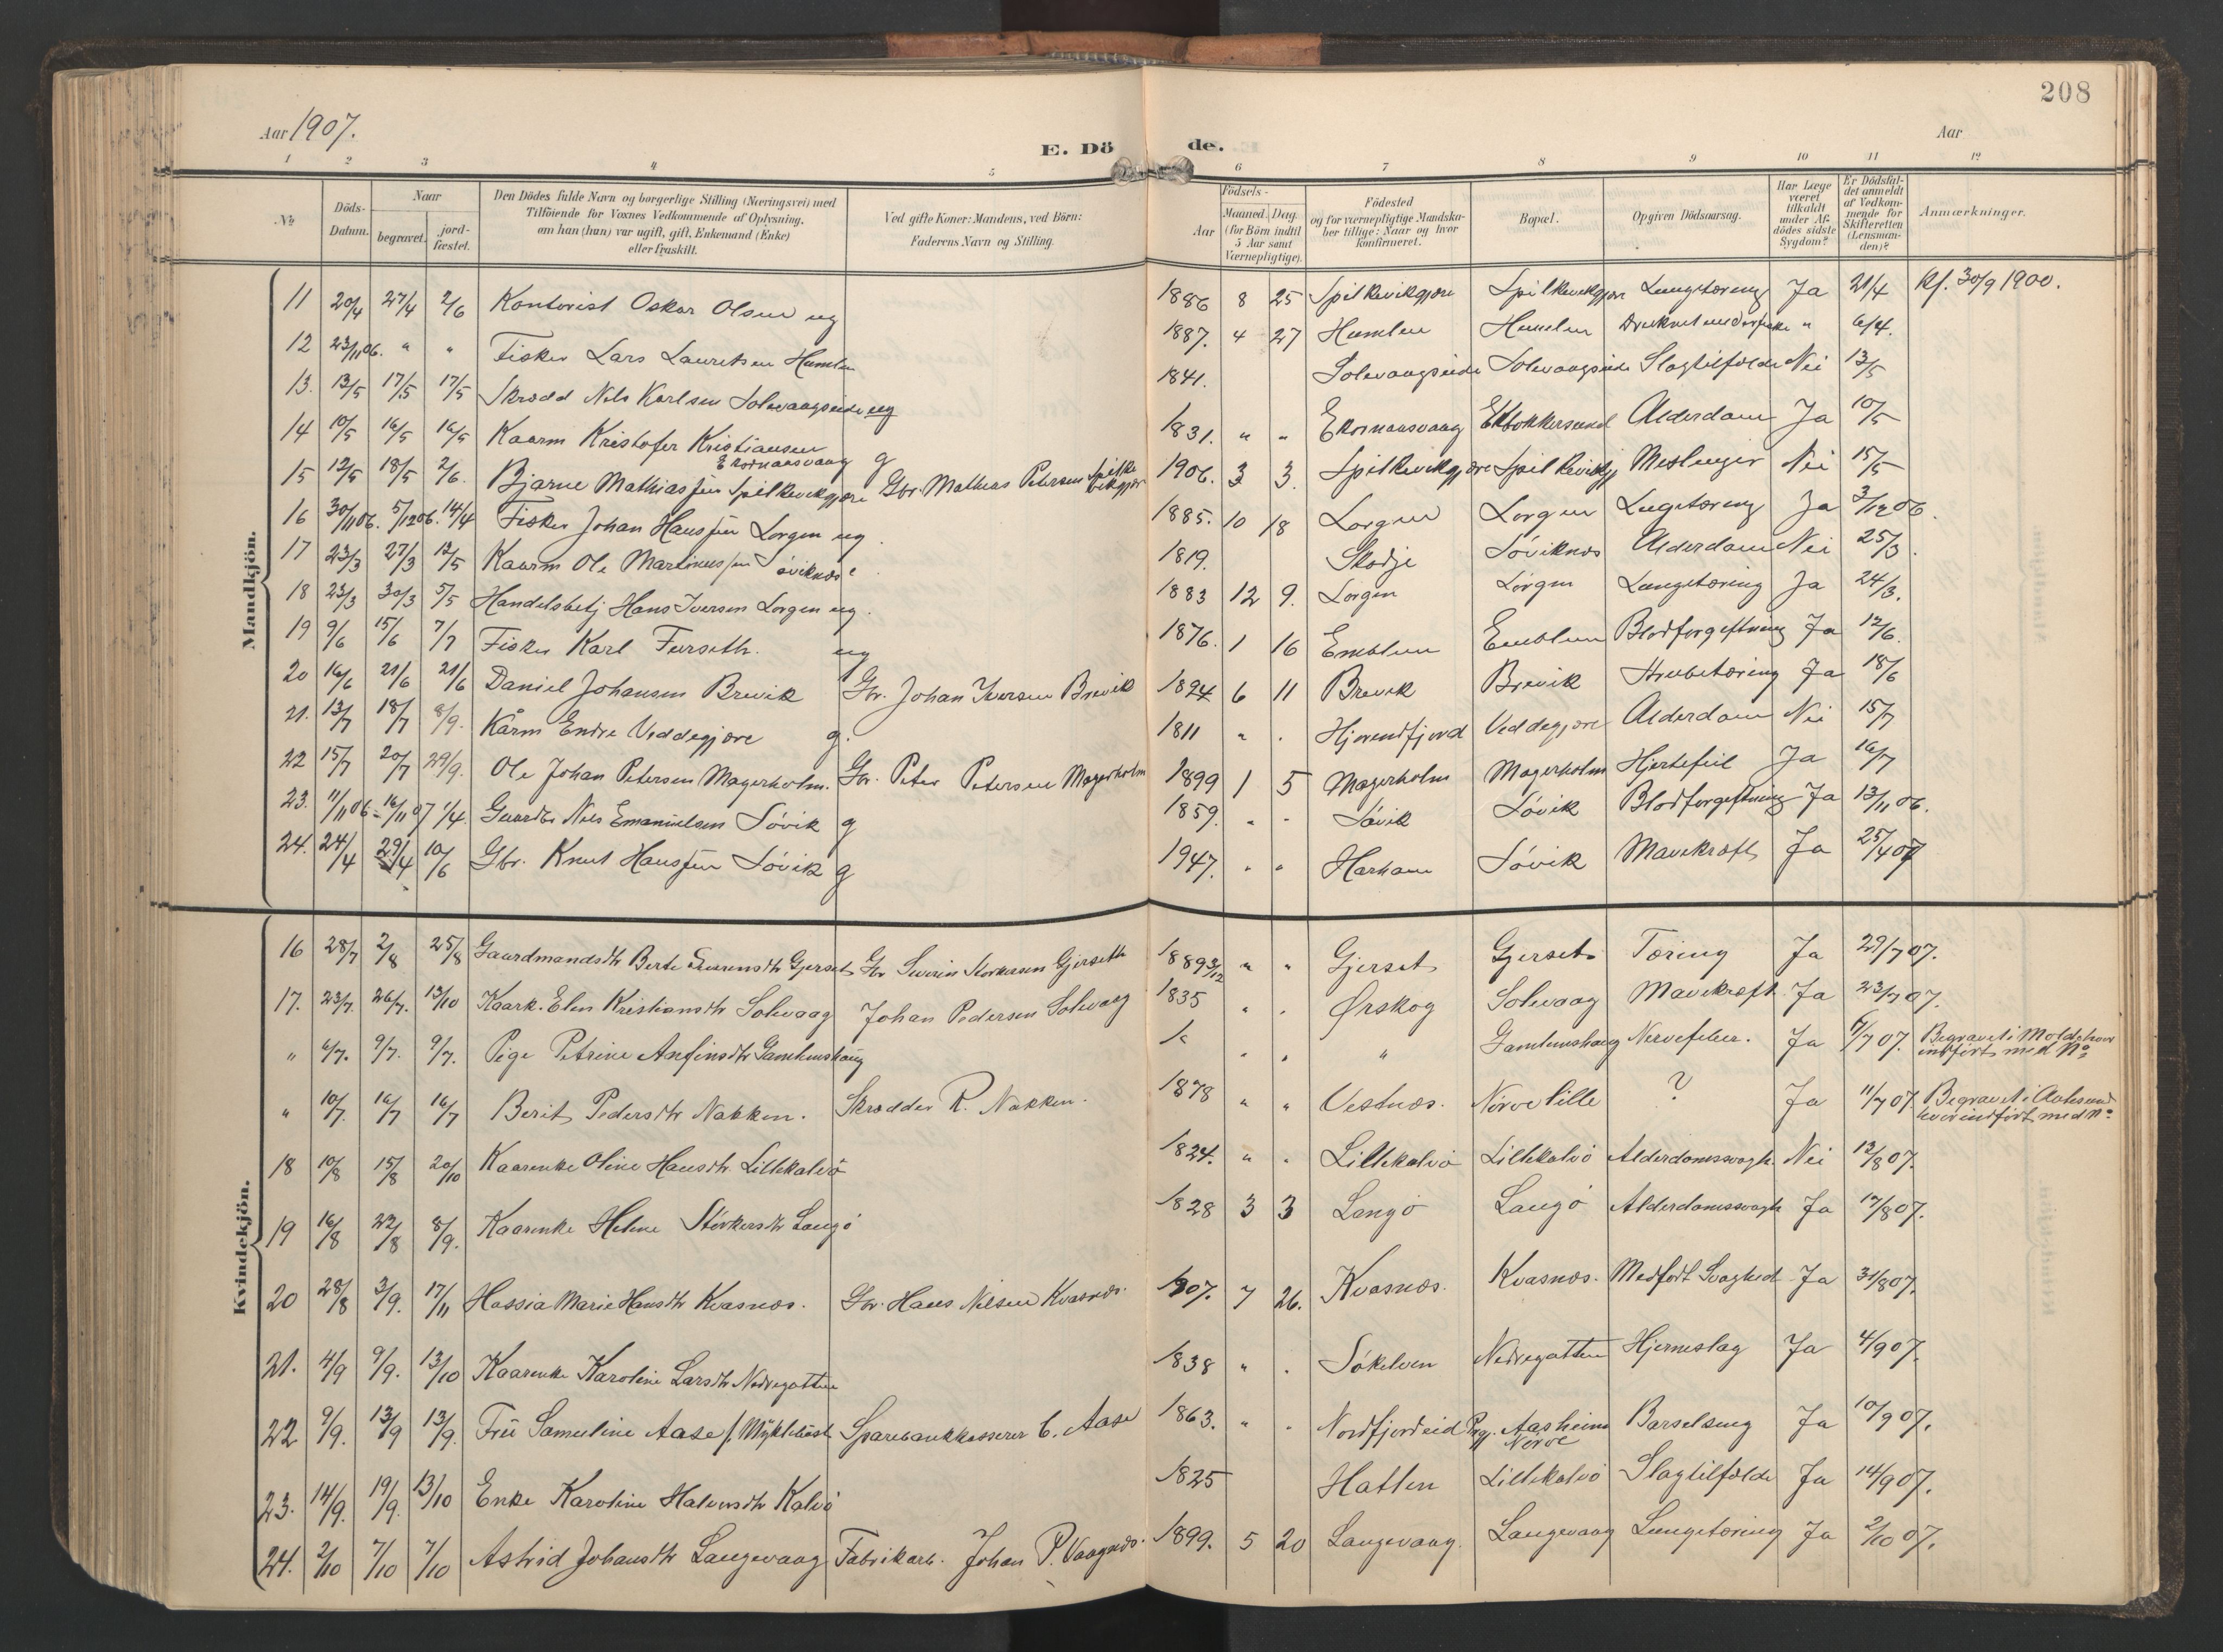 208
Aar 1907.
E. Döde.
Aar
1 2 3 4 5 6 7 8 9 10 11 12
№
Döds-Datum.
Naar begravet. jordfæstet.
Den Dödes fulde Navn og borgerlige Stilling (Næringsvei) med Tilföiende for Voxnes Vedkommende af Oplysning, om han (hun) var ugift, gift, Enkemand (Enke) eller fraskilt.
Ved gifte Koner: Mandens, ved Börn: Faderens Navn og Stilling.
Födsels- Aar Maaned. Dag. (for Börn indtil 5 Aar samt Værnepligtige).
Födested og for værnepligtige Mandskaber tillige: Naar og hvor konfirmeret.
Bopæl.
Opgiven Dödsaarsag.
Har Læge været tilkaldt under Afdödes sidste Sygdom?
Er Dödsfaldet anmeldt af Vedkommende for Skifteretten (Lensmanden)?
Anmærkninger.
Mandkjön.
11 20/4 27/4 2/6 Kontorist Oskar Olsen ug 1886 8 25 Spilkevikgjære Spilkevikgjær Lungetæring Ja 21/4 Kf. 30/9 1900.
12 23/11 06. " " Fisker Lars Lauritsen Humlen 1887. 4 27 Humlen Humlen Druknet under fiske " 6/4.
13. 13/5 17/5 17/5 Skrædd Nils Karlsen Solevaagseide ug 1841. Solevaagseide Solevaagseide Slagtilfælde Nei 13/5
14 10/5 16/5 16/5 Kaarm Kristofer Kristiansen Ekornaasvaag g 1831. " " Ekornaasvaag Alderdom Ja 10/5
15 12/5 18/5 2/6. Bjarne Mathiassen Spilkevikgjære Gbr. Mathias Petersen Spilkevikgjær 1906. 3 3. Spilkevikgjære Spilkevikgj Meslinger Nei 15/5
16 30/11 06. 5/12 06. 14/4 Fisker Johan Hanssen Lorgen ug. 1885. 10 18 Lorgen Lorgen Lungetæring Ja 3/12 06.
17 23/3 27/3 12/5 Kaarm Ole Martinussen Søviknæs e. 1819. Skodje Søviknæs Alderdom Nei 25/3.
18 23/3 30/3 5/5 Handelsbetj Hans Iversen Lorgen ug. 1883 12 9. Lorgen Lorgen Lungetæring Ja 24/3.
19 9/6 15/6 7/7 Fisker Karl Furseth. ug 1876. 1 16 Emblem Emblem Blodforgiftning Ja 12/6.
20 16/6 21/6 21/6 Daniel Johansen Brevik Gbr. Johan Iversen Brevik 1894 6 11 Brevik Brevik Strubetæring Ja 18/6
21. 13/7 18/7 8/9. Kårm Endre Veddegjære g. 1811 " . Hjørendfjord Veddegjære Alderdom Nei 15/7
22 15/7 20/7 29/9. Ole Johan Petersen Magerholm. Gbr. Peter Petersen Magerholm 1899 1 5 Magerholm Magerholm Hjertefeil Ja 16/7
23. 11/11 06 - 16/11 07 1/4. Gaardbr Nils Emanuelsen Søvik g 1859. " - Søvik Søvik Blodforgiftning Ja 13/11 06.
24. 24/4 29/4 10/6 Gbr. Knut Hanssen Søvik g 1947. " " Harham Søvik Mavekræft Ja 25/4 07
Kvindekjön.
16 28/7 2/8 25/8 Gaardmandsdtr Berte Gjerset Gbr Severin Storkersen Gjerseth 1889 3/12 " " Gjerset Gjerset Tæring Ja 29/7 07.
17. 23/7. 26/7. 13/10 Kaark. Elen Kristiansdtr Solevaag Johan Pedersen Solevaag 1835 " . Ørskog Solevaag Mavekræft Ja 23/7 07.
" 6/7. 9/7. 9/7. Pige Petrine Anfinsdtr Gamlemshaug 1 " " " Gamlemshaug Nervefeber. Ja 6/7 07. Begravet i Molde hvor indført med No
" 10/7. 16/7 16/7 Berit Pedersdtr Nakken. Skrædder R. Nakken. 1878 " " Vestnæs. Nørve lille ? Ja 11/7 07. Begravet i Aalesund hvor indført med No
18 10/8 15/8 20/10 Kaarenke Oline Hansdtr. Lillekalvø 1824. " . Lillekalvø Lillekalvø Alderdomssvagh. Nei 12/8 07.
19 16/8 22/8 8/9. Kaarenke Helene Størkersdtr Langø 1828 3 3 Langø Langø Alderdomssvagh Ja 17/8 07.
20 28/8 3/9. 17/11 Hassia Marie Hansdtr Kvasnæs. Gbr. Hans Nilsen Kvasnæs. 1907. 7 26. Kvasnæs. Kvasnæs. Medfødt Svaghed Ja 31/8 07.
21. 4/9 9/9. 13/10 Kaarenke Karoline Larsdtr Nedregotten 1838 " . Søkelven Nedregotten Hjerneslag Ja 4/9 07.
22 9/9. 13/9 13/9. Frü Samueline Aase f. Myklebust Sparebankkasserer C. Aase 1863. " . Nordfjordeid Aasheim Nørve Barselseng Ja 10/9 07.
23. 14/9. 19/9. 13/10 Enke Karoline Halvorsdtr Kalvø 1825 Hatlen Lillekalvø Slagtilfælde Ja 14/9 07.
24. 2/10 7/10 7/10 Astrid Johansdtr Langevaag Fabrikarb. Johan P. Vaagnæs. 1899. 5 20 Langevaag. Langevaag Lungetæring Ja 2/10 07.